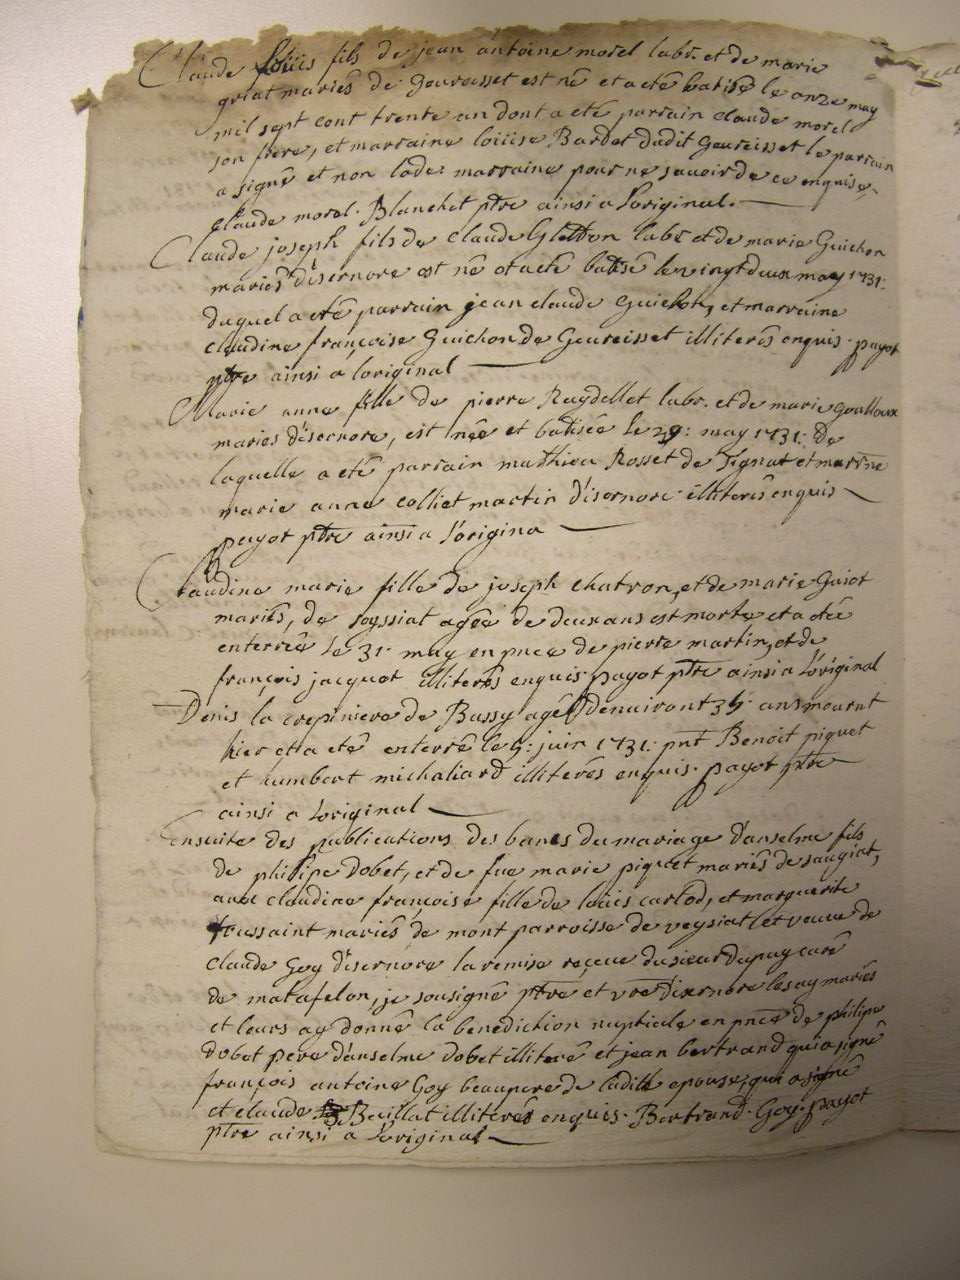 Claude Loüis fils de jean antoine morel labr. et de marie
griat mariés de Geureisset est né et a eté batisé le onze may
mil sept cent trente un dont a eté parrain claude morel
son frere, et marraine loüise Bardet dudit Geureisset le parrain
a signé et non lade: marraine pour ne savoir de ce enquise,
claude morel. Blanchet ptre ainsi a l'original.
Claude joseph fils de claude Gletton labr et de marie Guichon
mariés d'isernore est né et a eté batisé le vingt deux may 1731:
duquel a eté parrain jean claude Guichon, et marraine
claudine françoise Guichon de Geureisset illiterés enquis. payot
ptre ainsi a loriginal
Marie anne fille de pierre Reydellet labr. et de marie goulloux
mariés d'isernore, est née et batisée le 29: may 1731: de
laquelle a eté parrain mathieu Rosset de Tignat et marrne
marie anne colliet martin d'isernore illiterés enquis
payot ptre ainsi a l'origina
Claudine marie fille de joseph chatron, et de marie Guiot
mariés, de soyssiat agée de deux ans est morte et a eté
enterrée le 31. may en pnce de pierre martin, et de
françois jacquot illiterés enquis. payot ptre ainsi a l'original
Denis la crepiniere de Bussy agé denviront 34: ans mourut
hier et a eté enterré le 9: juin 1731: pnt Benoit piquet
et humbert michaliard illiterés enquis. payot ptre
ainsi a l'original
Ensuite des publications des bancs du mariage d'anselme fils
de philipe Dobet, et de fue marie piquet mariés de saugiat,
avec claudine françoise fille de loüis carlod, et marguerite
toussaint mariés de mont parroisse de veysiat et veuve de
claude Goy d'isernore la remise reçeue du sieur Dupuy curé
de matafelon, je sousigné ptre et vre disernore les ay mariés
et leurs ay donné la benediction nuptiale en pnce de philipe
Dobet pere d'anselme dobet illiteré et jean bertrand qui a signé
françois antoine Goy beaupere de ladite epouse, qui a signé
et claude Baillat illiterés enquis. Bertrand. Goy. payot
ptre ainsi a l'original